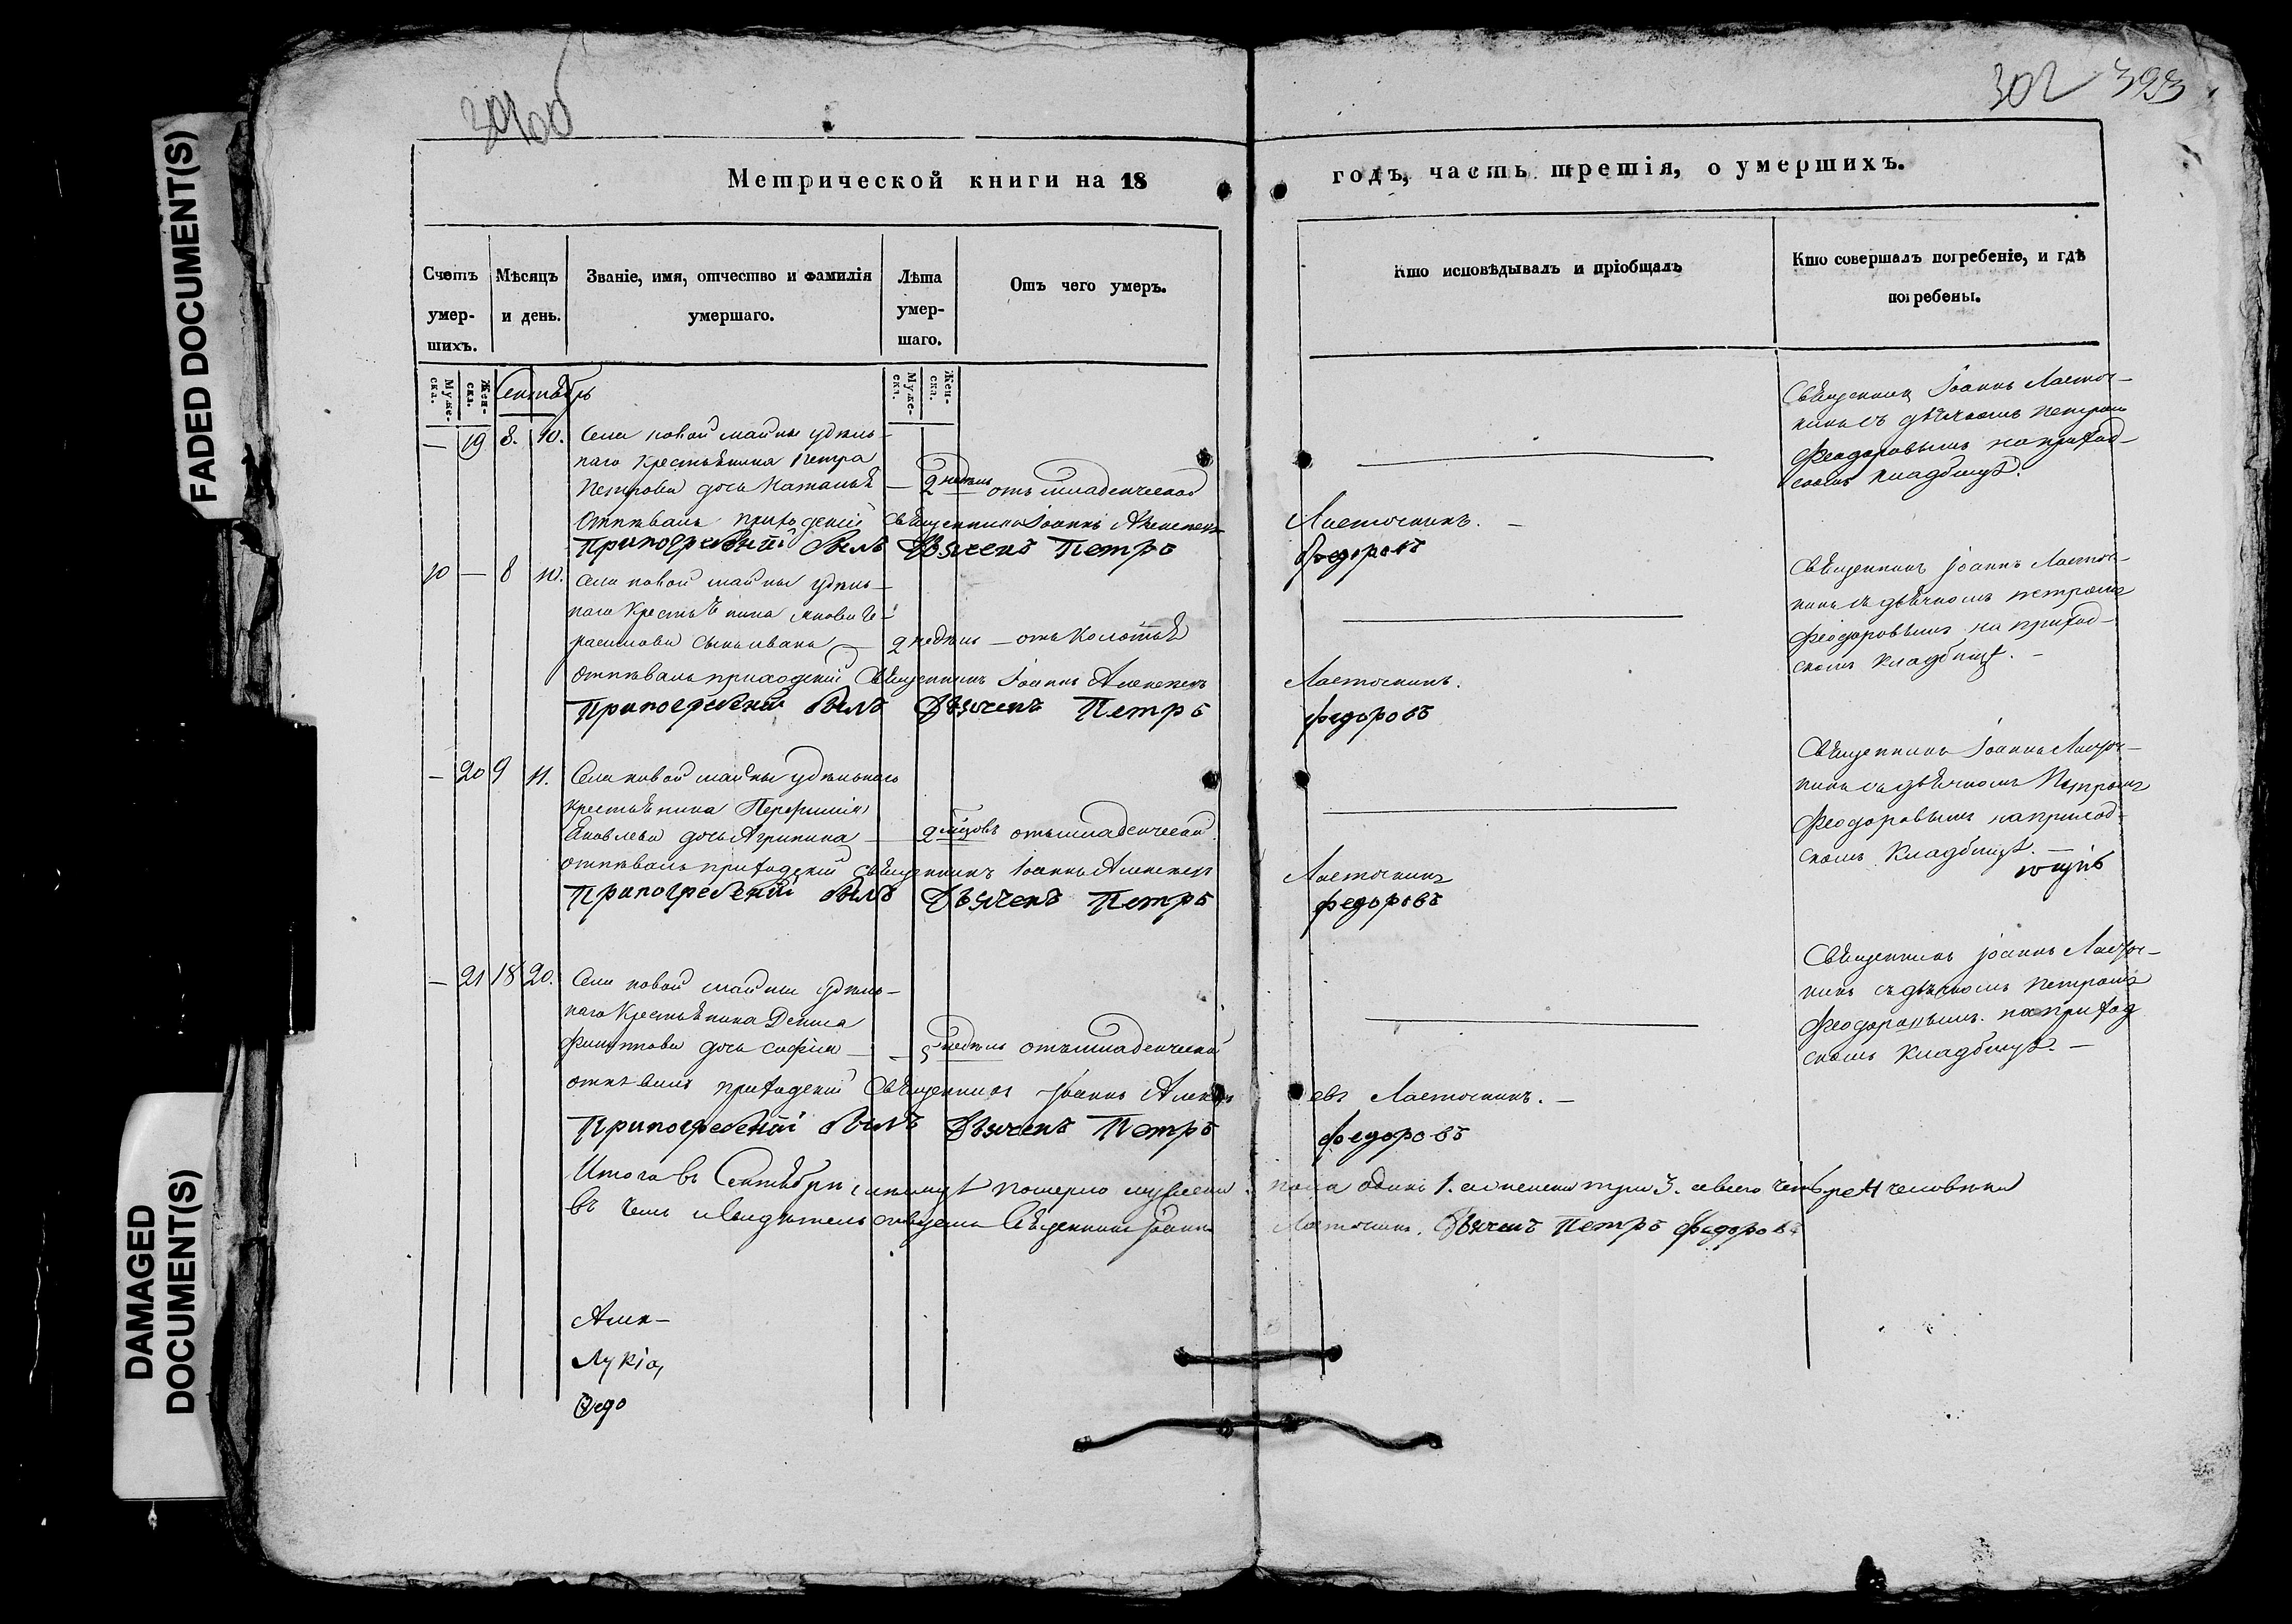 FADED DOCUMENT(S)
DAMAGED
DOCUMENT(S)
302 393
Метрической книги на 18 годъ, часть третія, о умершихъ.
Счетъ умер-шихъ.
Мѣсяцъ и день.
Званіе, имя, отчество и фамилія умершаго.
Лѣта умер-шаго.
Отъ чего умеръ.
Кто исповѣдывалъ и пріобщалъ
Кто совершалъ погребеніе, и гдѣ погребены.
Муже-ска. Жен-ска.
Сентябрь
Муже-ска. Жен-ска.
— 19 8. 10. Села новой майны удѣль-
наго крестьянина Петра
Петрова дочь Наталья — 2 недѣль отъ младенческой
Священник Іоаннъ Ласточ-
кинъ съ дьячкомъ Петромъ
Феодоровымъ на приход-
скомъ кладбищѣ.
Отпѣвалъ приходскій Священникъ Іоаннъ Алексѣевъ Ласточкинъ. —
Припогребеніи былъ Дьячекъ Петръ Федоровъ
10 — 8 10. Села новой майны удѣль-
наго крестьянина Ге-
расимова сынъ иванъ — 2 недѣль — отъ колотья
Священникъ Іоаннъ Ласточ-
кинъ съ дьячкомъ петромъ
Феодоровымъ на приход-
скомъ кладбищѣ. —
Отпѣвалъ приходскій Священникъ Іоаннъ Алексѣевъ Ласточкинъ.
Припогребеніи былъ Дьячекъ Петръ федоровъ
— 20 9 11. Села новой майны удѣльнаго
крестьянина
Яковлева дочь Агрипина — 2 мцовъ отъ младенческой
Священникъ Іоаннъ Ласточ-
кинъ съ дьячкомъ Петромъ
Феодоровымъ на приход-
скомъ кладбищѣ.
отпѣвалъ приходскій священникъ Іоаннъ Алексѣевъ Ласточкинъ
Припогребеніи былъ Дьячекъ Петръ федоровъ
— 21 18 20. Села новой майны удѣль-
наго Крестьянина Дениса
Филиппова дочь софія — — 5 недѣль отъ младенческой
Священникъ Іоаннъ Ласточ-
кинъ съ дьячкомъ петромъ
Феодоровымъ на приход
скомъ кладбищѣ. —
отпѣвалъ приходскій Священникъ Іоаннъ Алексѣевъ Ласточкинъ. —
Припогребеніи былъ Дьячекъ Петръ федоровъ
Итого въ Сентябрѣ померло мужеска пола одинъ 1. а женска три 3. а всего четыре 4 человѣка
въ чемъ Священникъ Іоаннъ Ласточкинъ. Дьячекъ Петръ федоровъ
Алек-
Лукія,
Ѳедо